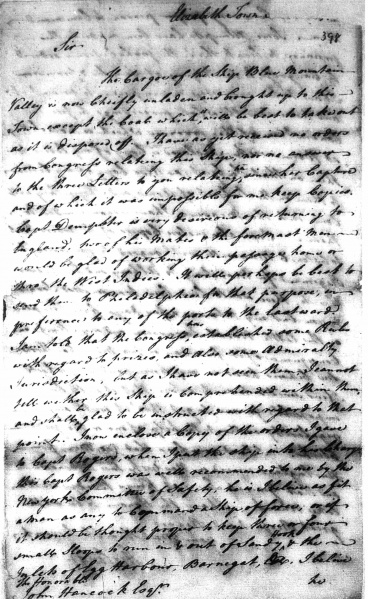 Elizabeth Town
398
Sir
The Cargoe of the Ship Blue Mountain
Valley is now Cheifly unladen and brought up to this
Town, except the Coals which will be best to take out
as it is disposed off. I have as yet received no orders
from Congress relating this Ship, nor no answer
to the three Letters to you relating to her Capture
and of which it was impossible for me keep Copies
Capt Dempster is very desirous of returning to
England, two of his Mates & the foremast Men
would be glad of working their passage home or
to the West Indies. It will perhaps be best to
send them to Philadelphia for that purpose, in
preference to any of the ports to the Eastward
I am told that the Congress have established some Rules
with regard to prizes, and also some Admiralty
Jurisdiction, but as I have not seen them I cannot
tell wether this Ship is Comprehended within them
and shall be glad to be instructed with regard to that
point. I now enclose a Copy of the orders I gave
to Capt Rogers, when I put the ship into
this Capt Rogers was well recommended to me by the
New York Committee of Safety, he is I believe as fit
a man as any to Command a Ship of force, or if
it should be thought proper to keep three or four
small Sloops to run in & out of Sandy Hook & the
Inlets of Egg Harbour, Barnegat, &c, I believe
The Honorable
John Hancock Esqr.
he